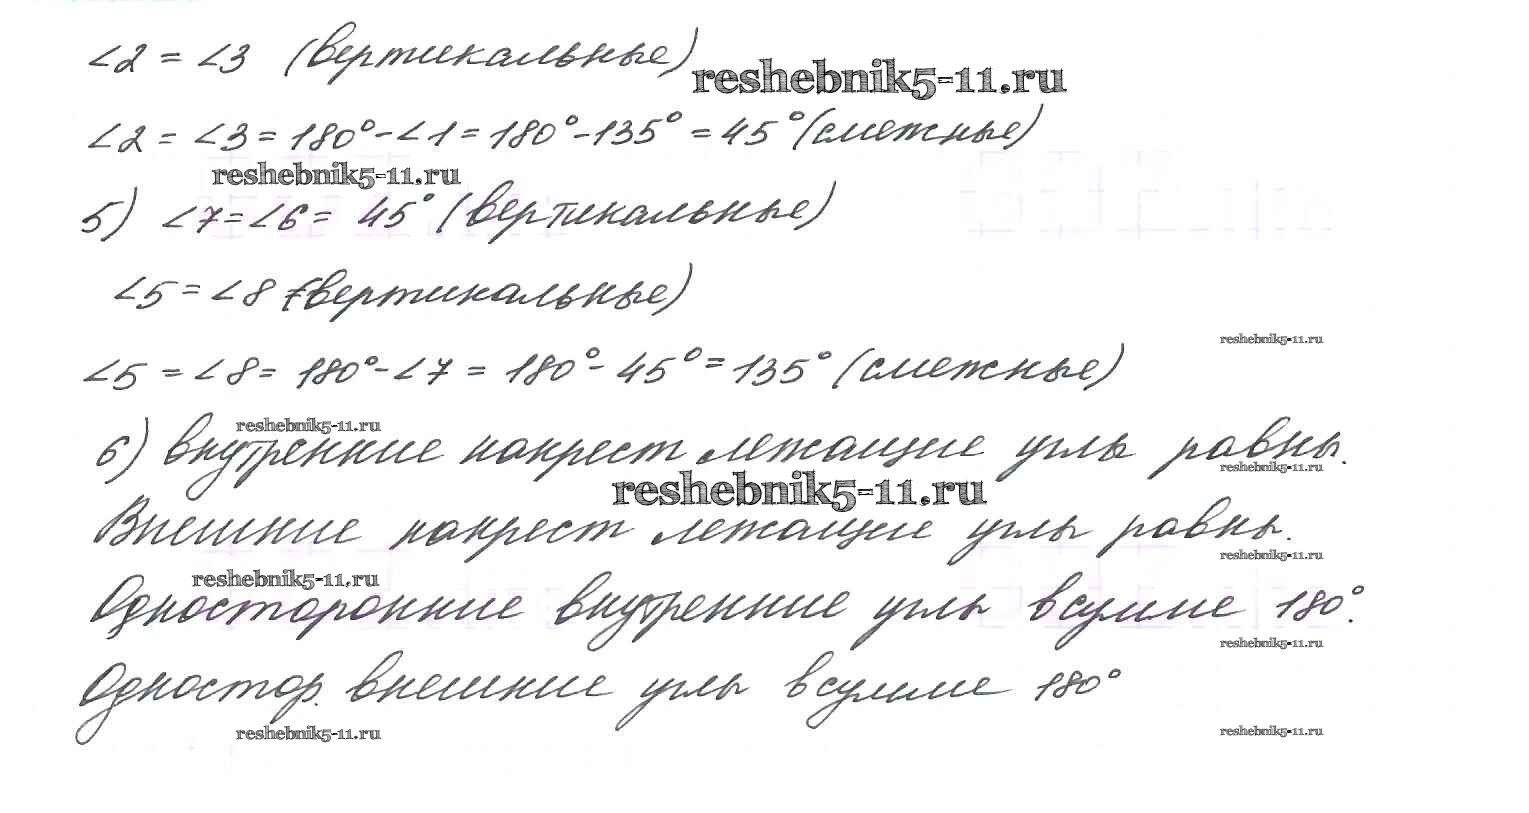 ∠2 = ∠3 (вертикальные)
reshebnik5-11.ru
∠2 = ∠3 = 180° - ∠1 = 180° - 135° = 45° (смежные)
reshebnik5-11.ru
5) ∠7 = ∠6 = 45° (вертикальные)
∠5 = ∠8 (вертикальные)
reshebnik5-11.ru
∠5 = ∠8 = 180° - ∠7 = 180° - 45° = 135° (смежные)
reshebnik5-11.ru
6) Внутренние накрест лежащие углы равны.
reshebnik5-11.ru
reshebnik5-11.ru
Внешние накрест лежащие углы равны.
reshebnik5-11.ru
reshebnik5-11.ru
Односторонние внутренние углы в сумме 180°.
reshebnik5-11.ru
Одностор. внешние углы в сумме 180°
reshebnik5-11.ru
reshebnik5-11.ru